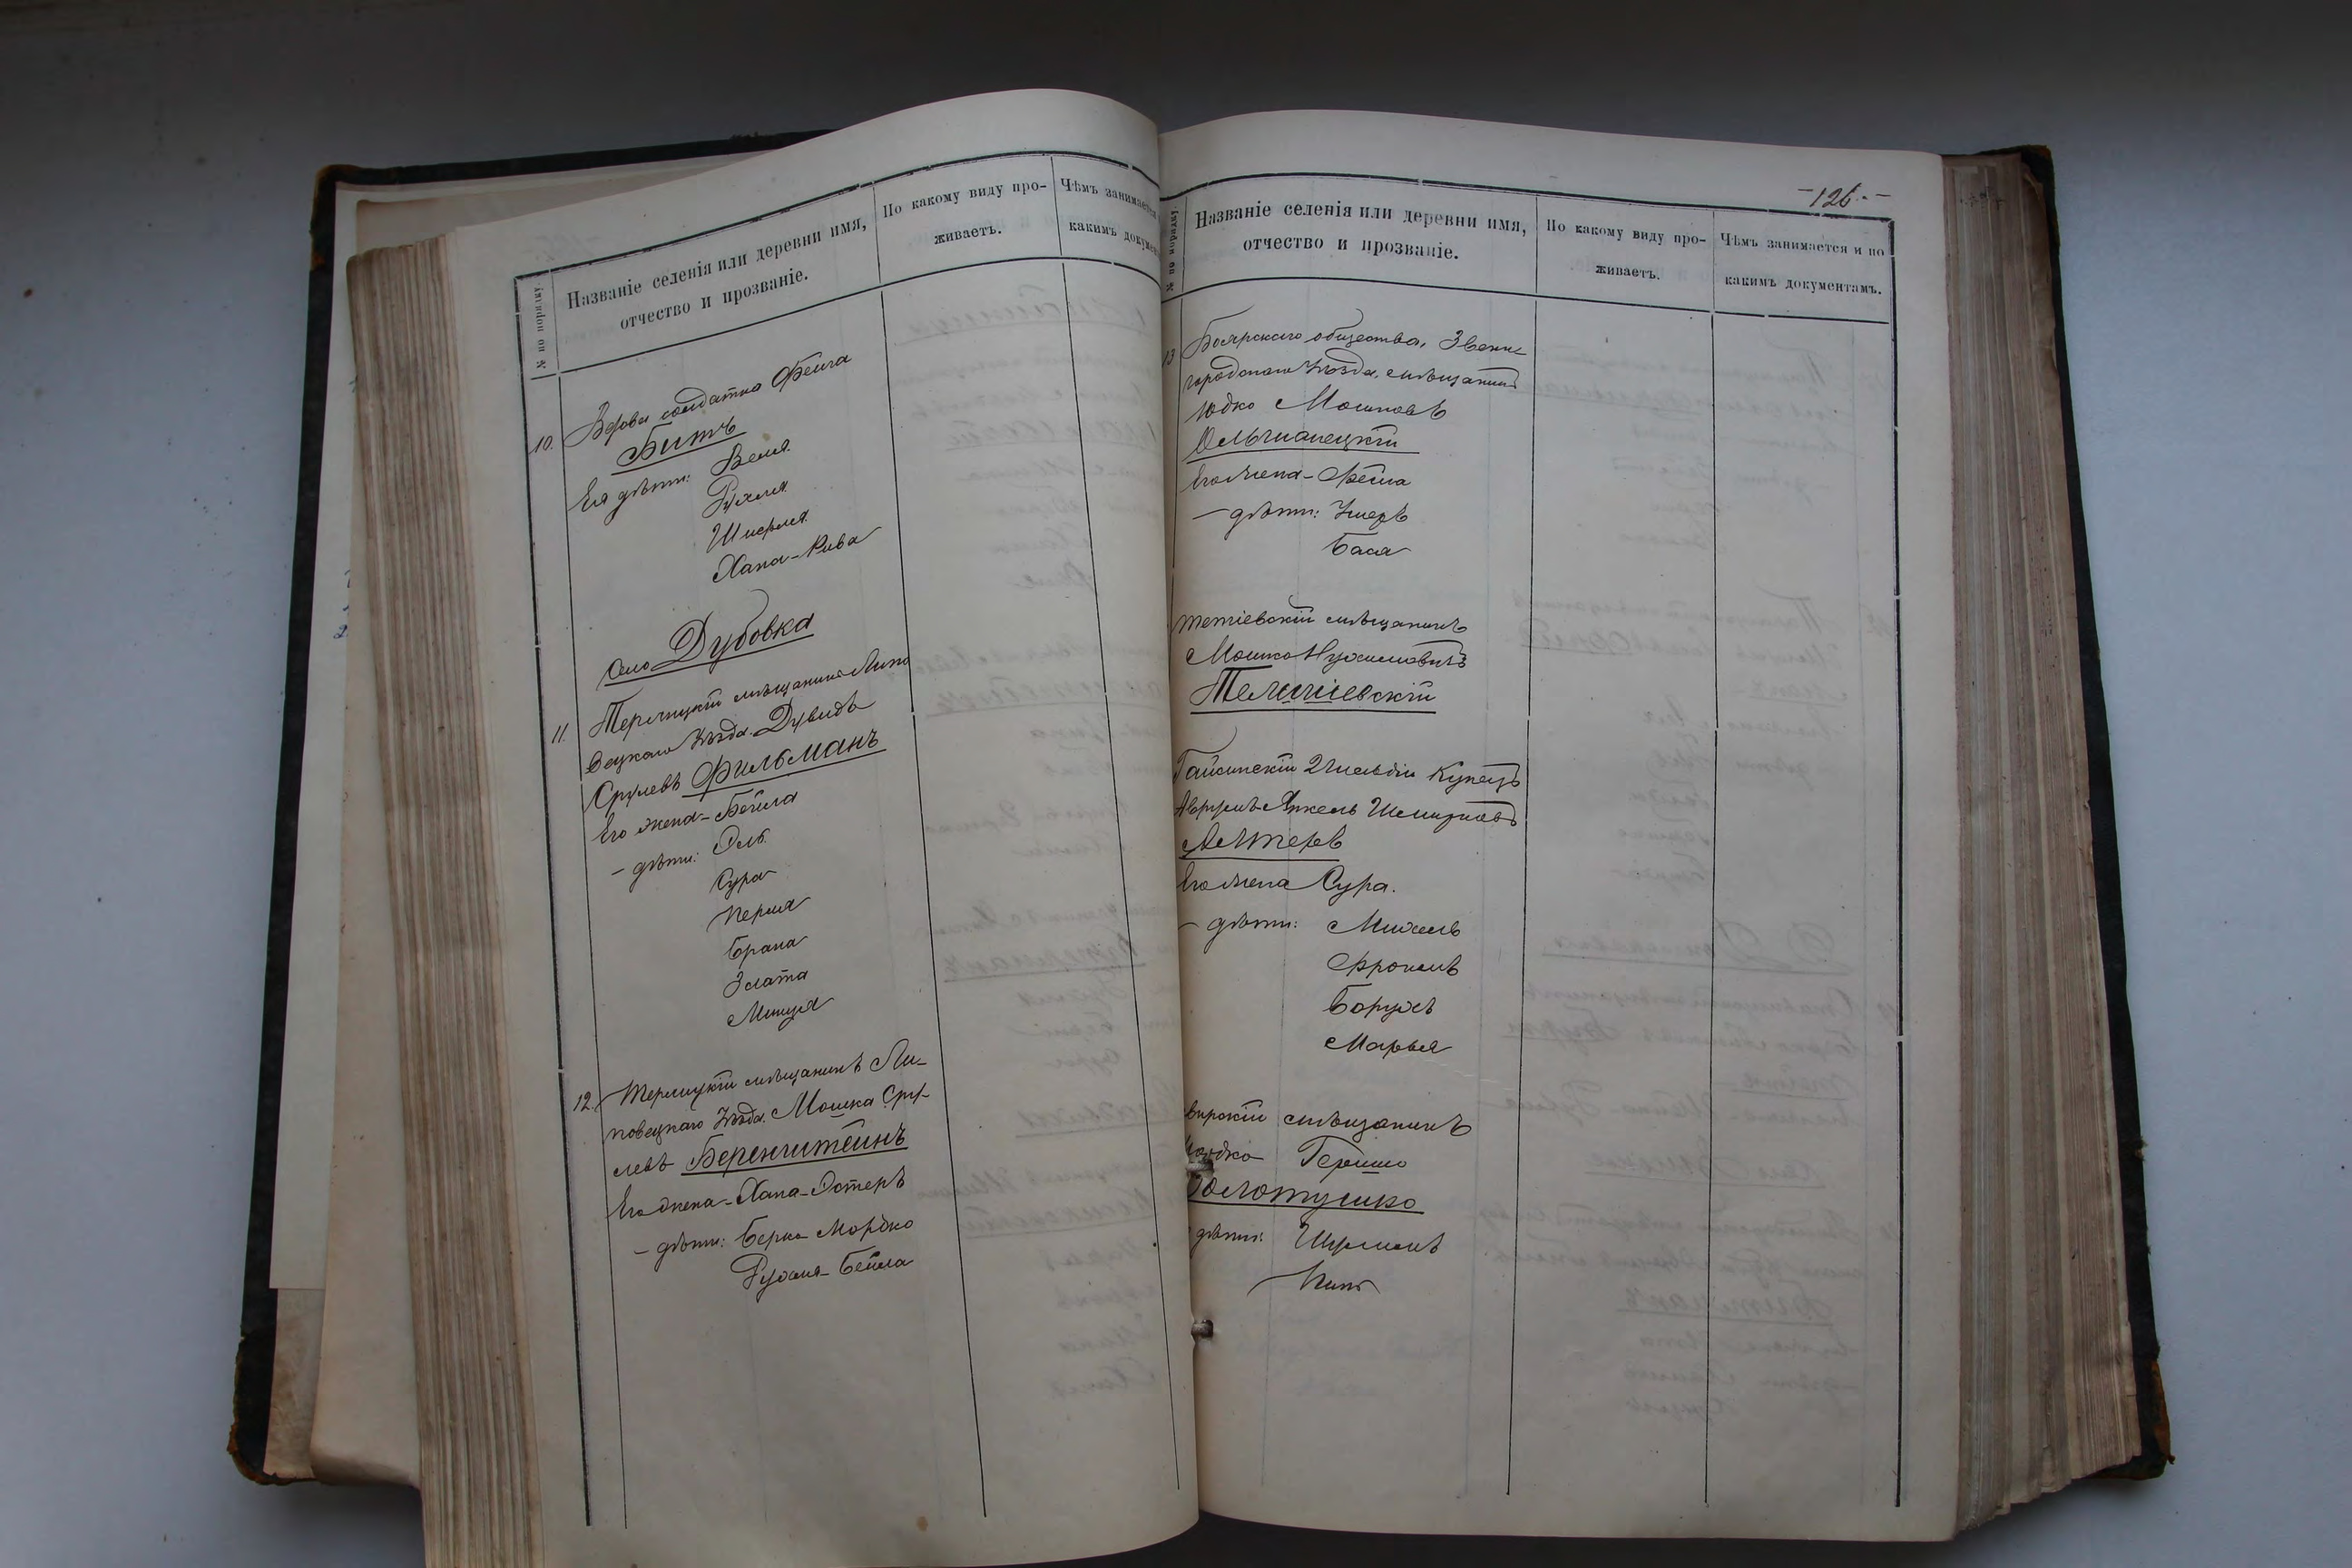 № по порядку.
Названіе селенія или деревни имя,
отчество и прозваніе.
По какому виду про-
живаетъ.
Чѣмъ занимается
какимъ докумен
10. Вдова солдатка Фейга
Битъ
Ея дѣти: Веля
Рухля
Шифля
Хана-Рива
село Дубовка
11. Терлицкій мѣщанинъ Липо
вецкаго уѣзда Дувидъ
Срулевъ Фильманъ
Его жена - Бейла
- дѣти: Эль
Сура
Перля
Брана
Злата
Минця
12. Терлицкій мѣщанинъ Ли-
повецкаго уѣзда Мошка Сру-
левъ Беренштейнъ
Его жена - Хана-Эстеръ
- дѣти: Берко Мордко
Рухля-Бейла
-126.-
№ по порядку.
Названіе селенія или деревни имя,
отчество и прозваніе.
По какому виду про-
живаетъ.
Чѣмъ занимается и по
какимъ документамъ.
13 Боярскаго общества, Звени-
городскаго уѣзда, мѣщанинъ
Юдко Мошковъ
Ольшанецкій
Его жена - Фейга
- дѣти: Умеръ
Бася
тетіевскій мѣщанинъ
Мошко Нухимовичъ
Телишевскій
Гайсинскій 2 гильдіи купецъ
Аврумъ-Янкель Шмулковъ
Алтеръ
Его жена Сура.
- дѣти: Михель
Фроимъ
Борухъ
Марьея
вирскій мѣщанинъ
Гершко
Золотушко
дѣти: Шулимъ